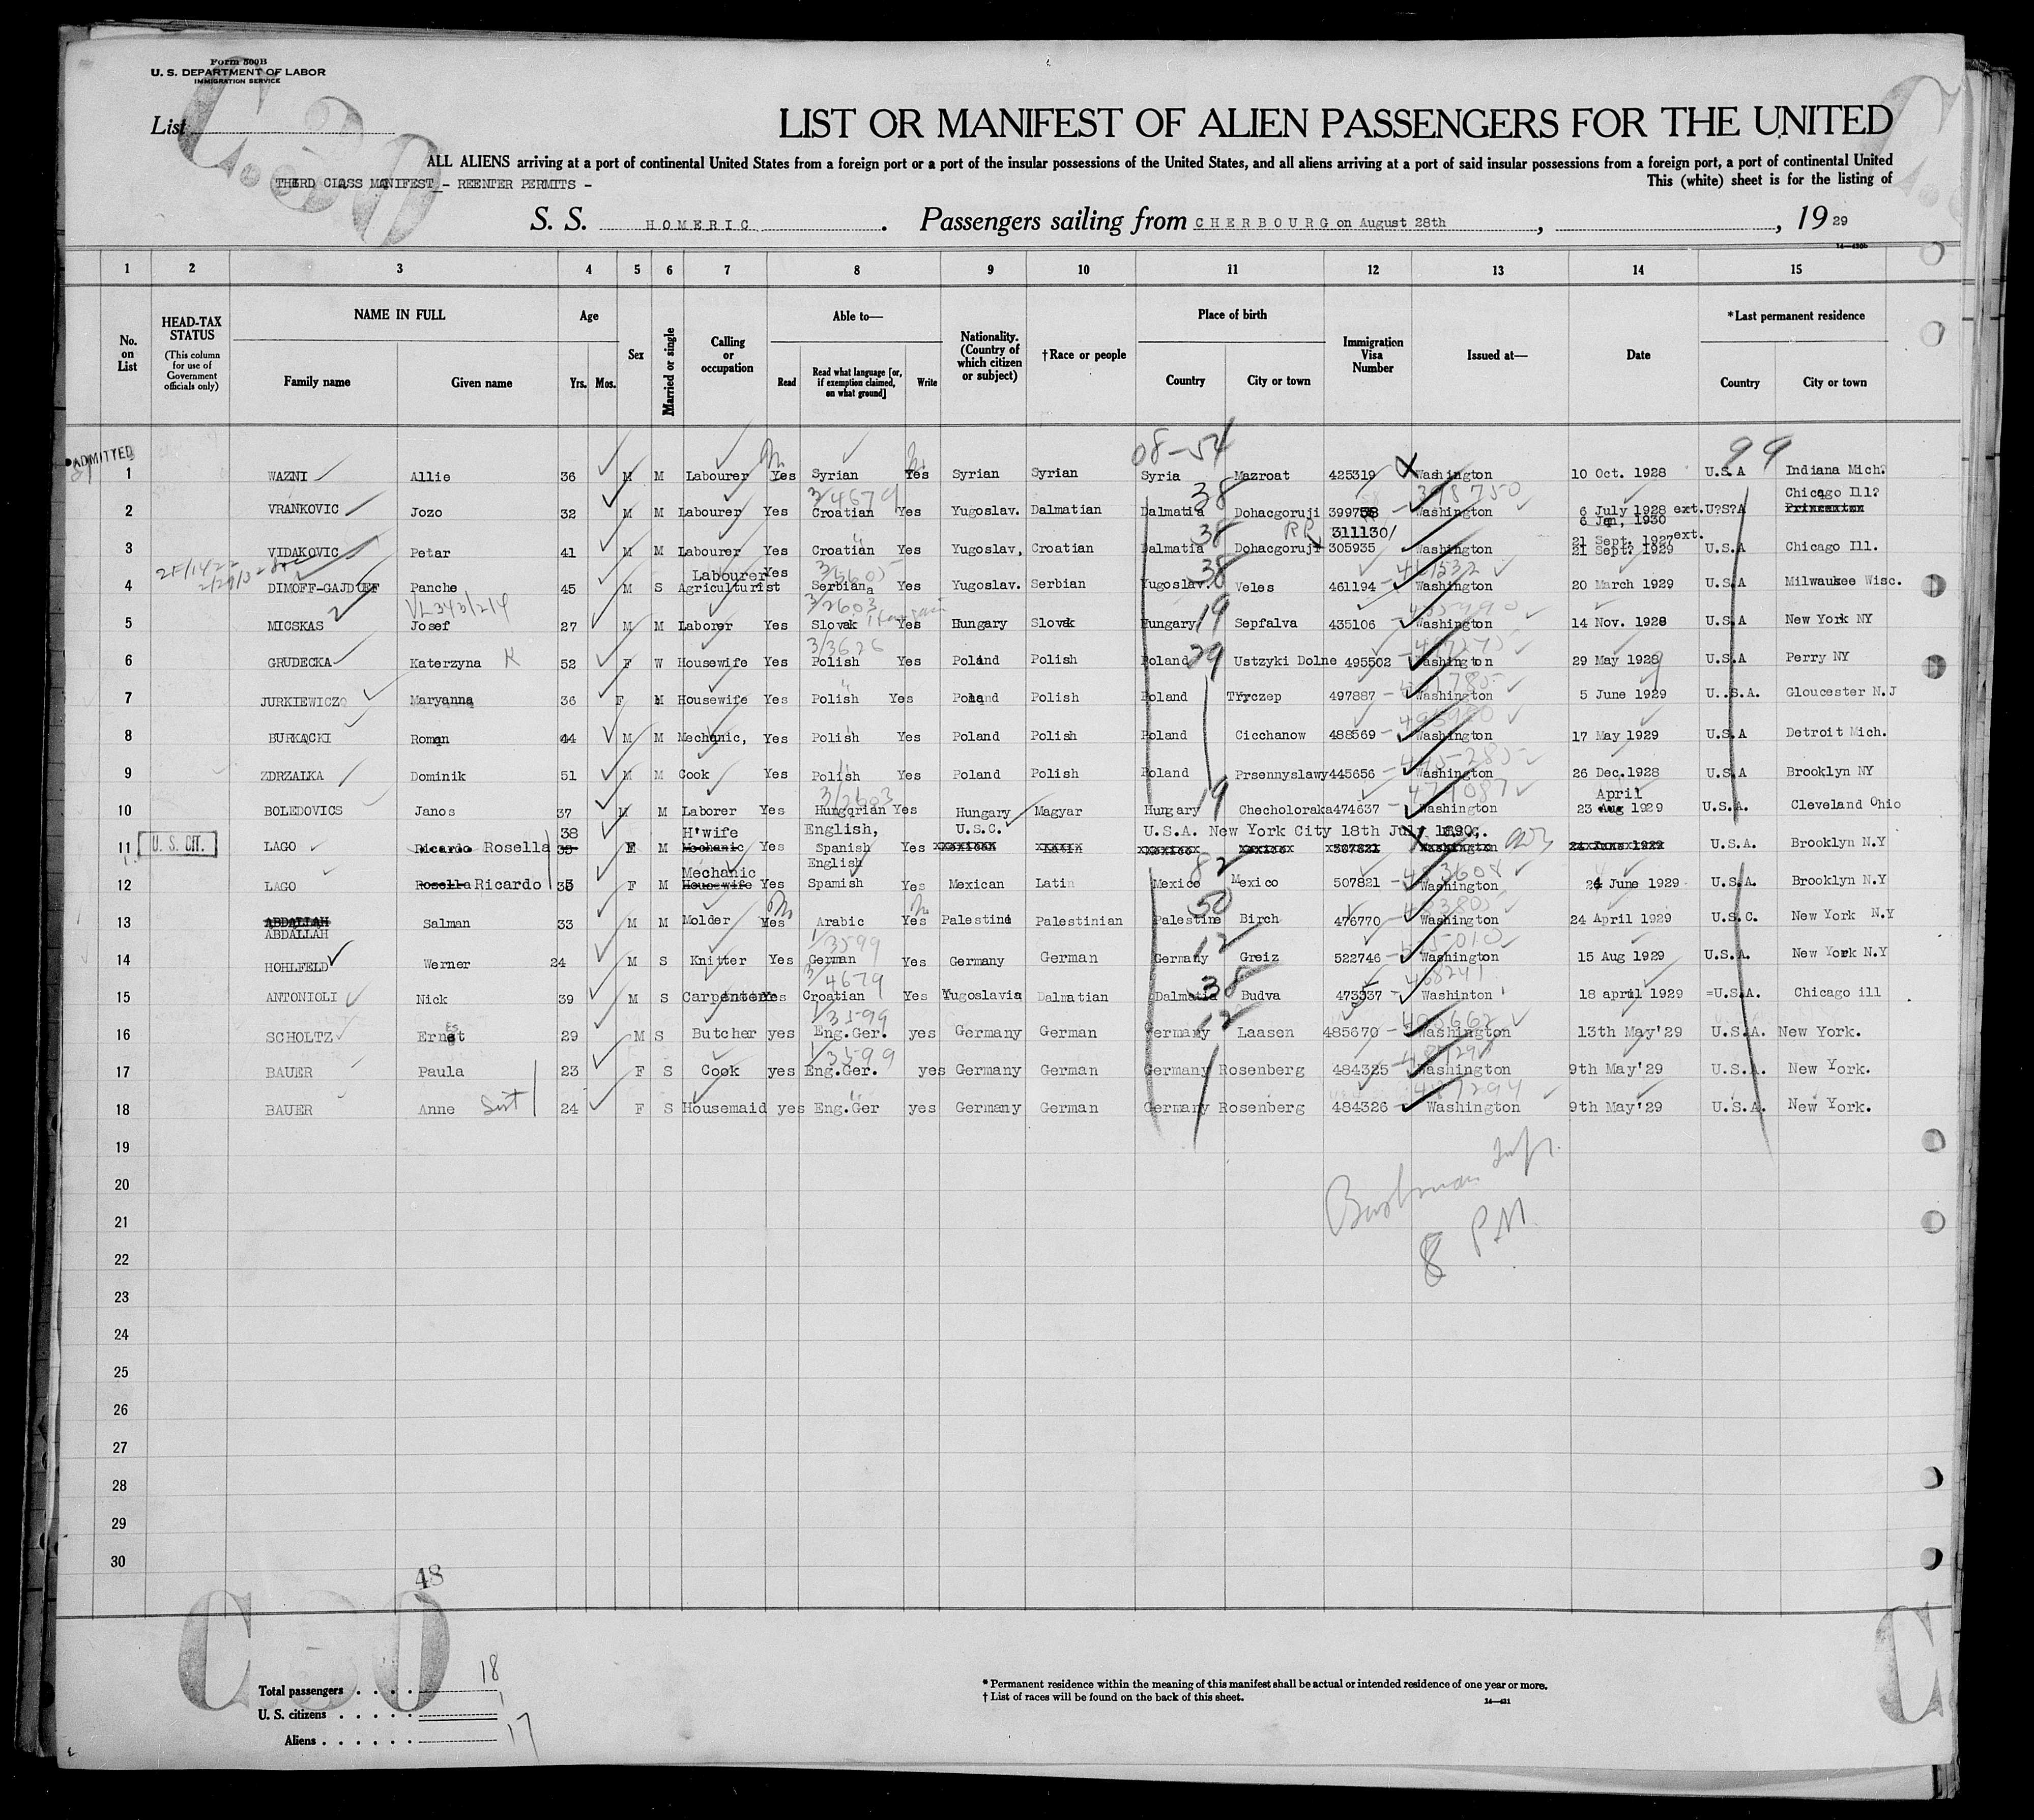 Form 500B
U. S. DEPARTMENT OF LABOR
IMMIGRATION SERVICE
List
LIST OR MANIFEST OF ALIEN PASSENGERS FOR THE UNITED
ALL ALIENS arriving at a port of continental United States from a foreign port or a port of the insular possessions of the United States, and all aliens arriving at a port of said insular possessions from a foreign port, a port of continental United
THIRD CLASS MANIFEST - REENTER PERMITS -
This (white) sheet is for the listing of
S. S. HOMERIC. Passengers sailing from CHERBOURG on August 28th, , 19 29
1 2 3 4 5 6 7 8 9 10 11 12 13 14 15
No. on List
HEAD-TAX STATUS
(This column for use of Government officials only)
NAME IN FULL
Family name Given name
Age
Yrs. Mos.
Sex
Married or single
Calling or occupation
Able to—
Read Read what language [or, if exemption claimed, on what ground] Write
Nationality. (Country of which citizen or subject)
†Race or people
Place of birth
Country City or town
Immigration Visa Number
Issued at—
Date
*Last permanent residence
Country City or town
ADMITTED
08-54 99
1 WAZNI Allie 36 M M Labourer Yes Syrian Yes Syrian Syrian Syria Mazroat 425319 Washington 10 Oct. 1928 U.S.A Indiana Mich.
3/4679 38 398750 Chicago Ill?
2 VRANKOVIC Jozo 32 M M Labourer Yes Croatian Yes Yugoslav. Dalmatian Dalmatia Dohacgoruji Washington 6 July 1928 ext. U?S?A
6 Jan, 1930
38 RP 311130/ 21 Sept. 1927 ext.
3 VIDAKOVIC Petar 41 M M Labourer Yes Croatian Yes Yugoslav, Croatian Dalmatia Dohacgoruji 305935 Washington 21 Sept. 1929 U.S.A Chicago Ill.
Labourer Yes 38
4 DIMOFF-GAJDOEF Panche 45 M S Agriculturist Serbian Yes Yugoslav. Serbian Yugoslav. Veles 461194 Washington 20 March 1929 U.S.A Milwaukee Wisc.
3/2603 19
5 MICSKAS Josef 27 M M Laborer Yes Slovak Yes Hungary Slovak Hungary Sepfalva 435106 Washington 14 Nov. 1928 U.S.A New York NY
3/3626 29
6 GRUDECKA Katerzyna K 52 F W Housewife Yes Polish Yes Poland Polish Poland Ustzyki Dolne 495502 Washington 29 May 1928 U.S.A Perry NY
7 JURKIEWICZ Maryanna 36 F M Housewife Yes Polish Yes Poland Polish Poland Tyrczep 497887 Washington 5 June 1929 U..S.A. Gloucester N.J
8 BURKACKI Roman 44 M M Mechanic, Yes Polish Yes Poland Polish Poland Cicchanow 488569 Washington 17 May 1929 U.S.A Detroit Mich.
9 ZDRZALKA Dominik 51 M M Cook Yes Polish Yes Poland Polish Poland Prsennyslawy 445656 Washington 26 Dec.1928 U.S.A Brooklyn NY
3/2603 19 April
10 BOLEDOVICS Janos 37 M M Laborer Yes Hungarian Yes Hungary Magyar Hungary Checholoraka 474637 Washington 23 Aug 1929 U.S.A. Cleveland Ohio
38 H'wife English, U.S.C. U.S.A. New York City 18th July 1890.
U. S. CIT.
11 LAGO Ricardo Rosella 35 F M Mechanic Yes Spanish Yes Mexican Latin Mexico Mexico 507821 Washington 24 June 1929 U.S.A. Brooklyn N.Y
Mechanic English 82 483608
12 LAGO Rosella Ricardo 35 F M Housewife Yes Spamish Yes Mexican Latin Mexico Mexico 507821 Washington 24 June 1929 U.S.A. Brooklyn N.Y
50
13 ABDALLAH Salman 33 M M Molder Yes Arabic Yes Palestine Palestinian Palestine Birch 476770 Washington 24 April 1929 U.S.C. New York N.Y
ABDALLAH
1/3599 12
14 HOHLFELD Werner 24 M S Knitter Yes German Yes Germany German Germany Greiz 522746 Washington 15 Aug 1929 U.S.A. New York N.Y
3/4679 38 468241
15 ANTONIOLI Nick 39 M S Carpenter Yes Croatian Yes Yugoslavia Dalmatian Dalmatia Budva 473537 Washinton 18 april 1929 =U.S.A. Chicago ill
1/3599 12
16 SCHOLTZ Ernst 29 M S Butcher yes Eng.Ger. yes Germany German Germany Laasen 485670 Washington 13th May'29 U.S.A. New York.
1/3599
17 BAUER Paula 23 F S Cook yes Eng.Ger. yes Germany German Germany Rosenberg 484325 Washington 9th May'29 U.S.A. New York.
487294
18 BAUER Anne Sist 24 F S Housemaid yes Eng.Ger yes Germany German Germany Rosenberg 484326 Washington 9th May'29 U.S.A. New York.
19
20
21
8 PM
22
23
24
25
26
27
28
29
30
48
Total passengers . . . . 18
U. S. citizens . . . . . 1
Aliens . . . . . . 17
* Permanent residence within the meaning of this manifest shall be actual or intended residence of one year or more.
† List of races will be found on the back of this sheet.
14—421